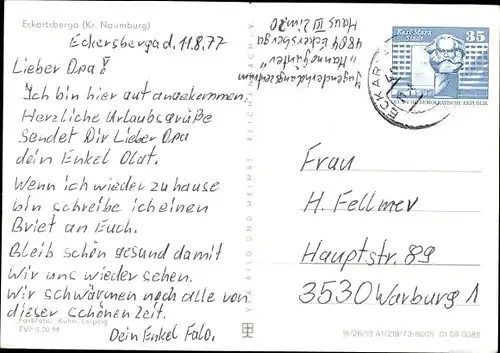 Eckartsberga (Kr. Naumburg)
Eckersbergad. 11.8.77
Lieber Opa!
Ich bin hier gut angekommen
Herzliche Urlaubsgrüße
Sendet Dir Lieber Opa
dein Enkel Olaf.
Wenn ich wieder zu hause
bin schreibe ich einen
Brief an Euch.
Bleib schön gesund damit
Wir uns wieder sehen.
Wir schwärmen noch alle von
dieser schönen Zeit.
Dein Enkel
Farbfoto: Kühn, Leipzig
EVP 0,20 M
VEB BILD UND HEIMAT REICHENBACH I. V.
Jugenderholungszentrum
"Hanno Günter"
4804 Eckersberga
Haus III Zim 20
Karl-Marx-
Stadt
35
DEUTSCHE DEMOKRATISCHE REPUBLIK
ECKAR
Frau
H. Fellmer
Hauptstr. 89
3530 Warburg 1
III/26/13 A1/219/73-8005 01 08 0082